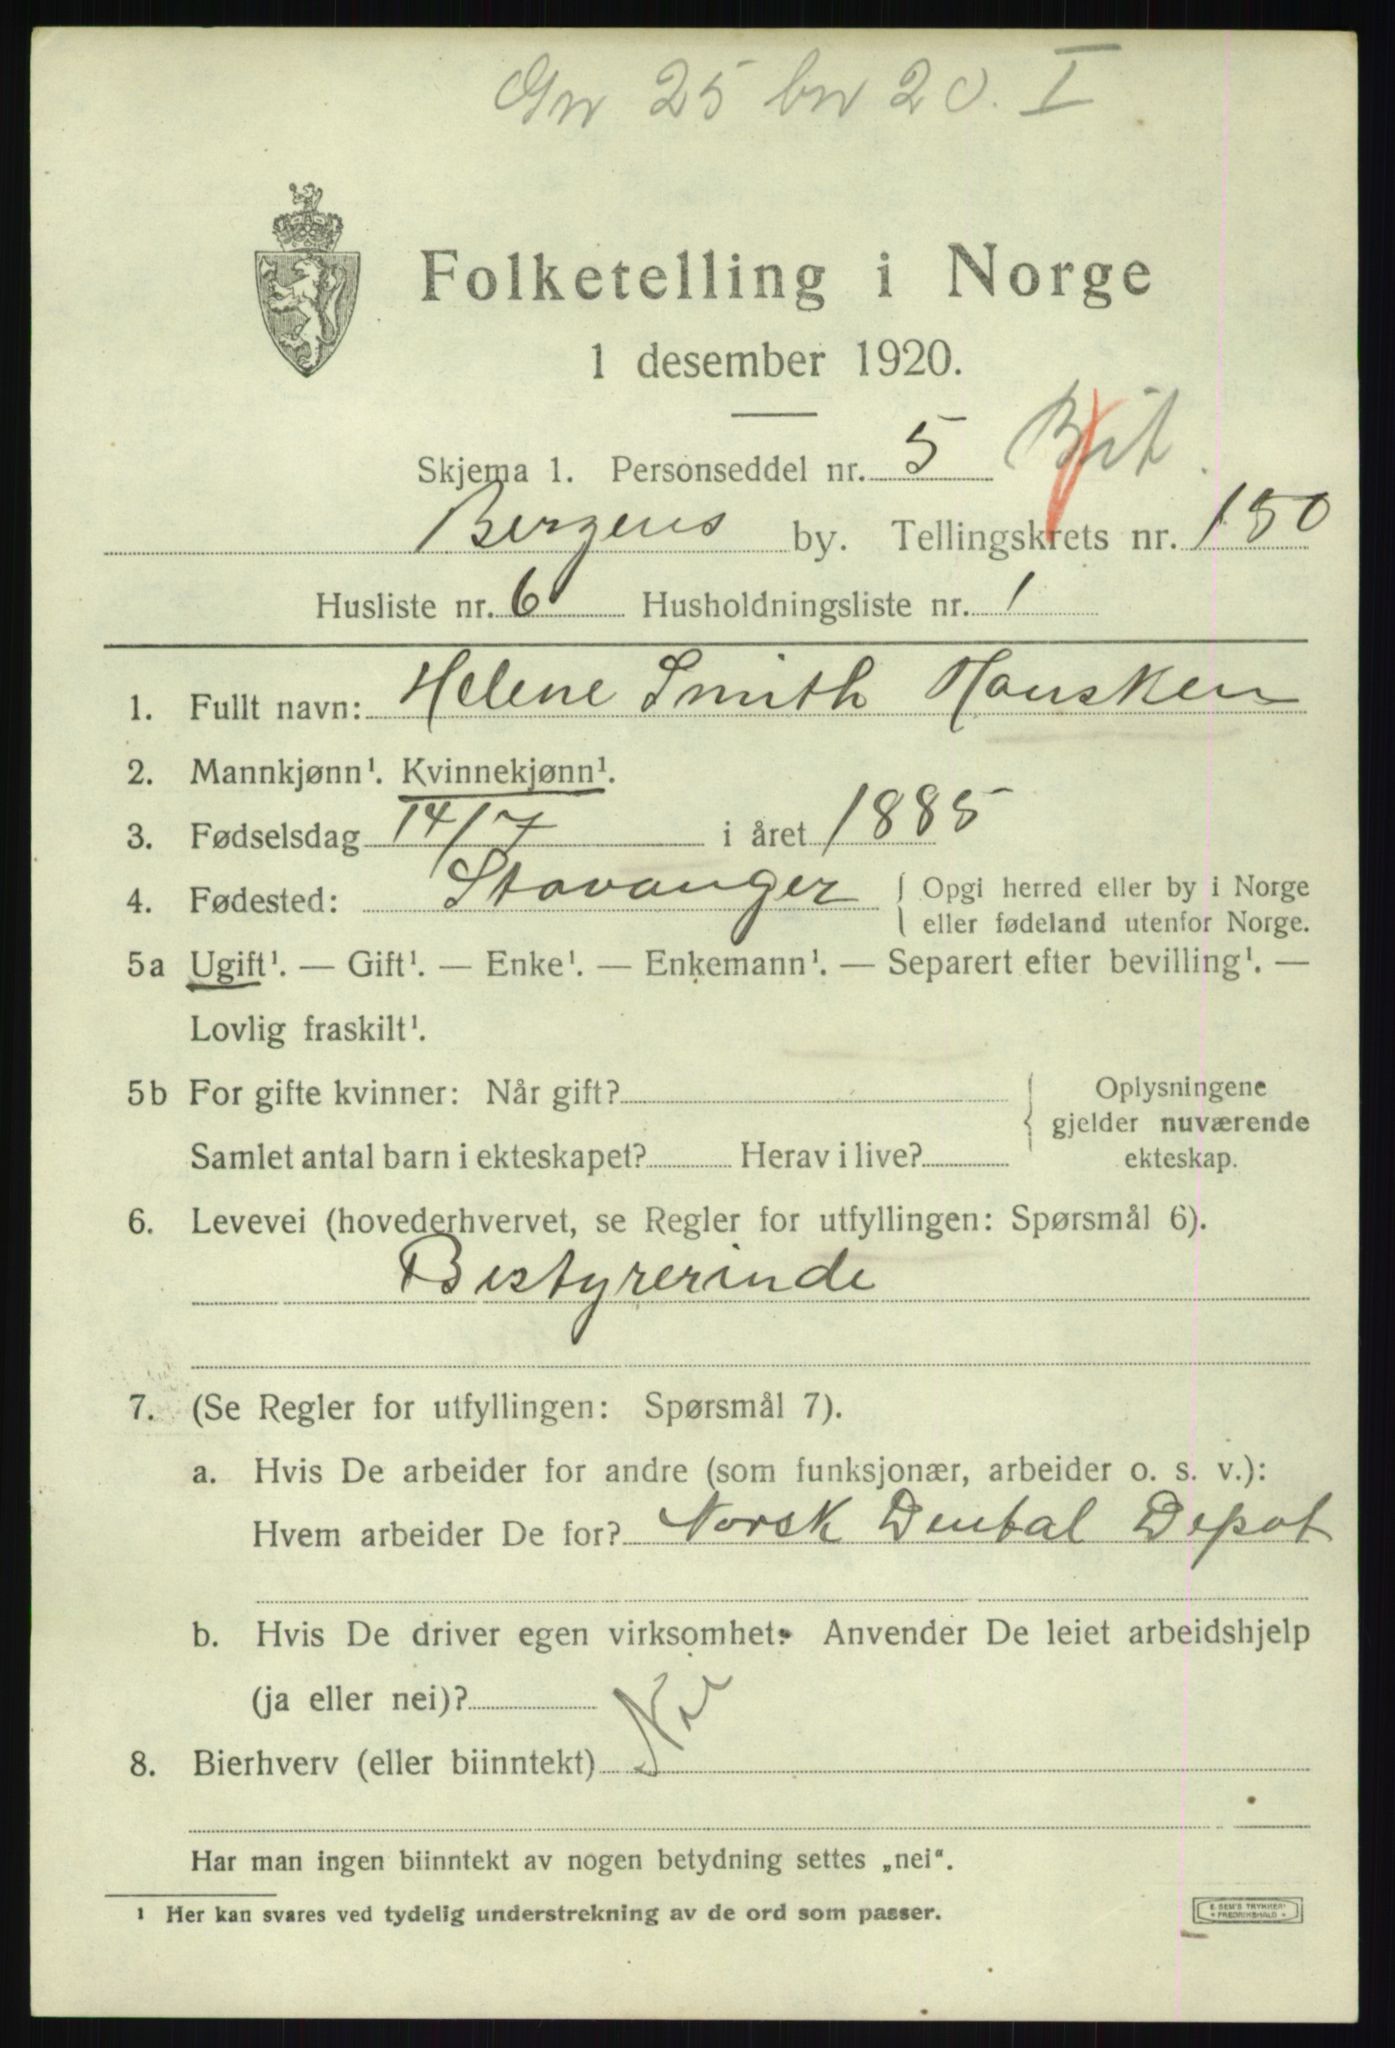 Gn 25 bn 20. I
Folketelling i Norge
1 desember 1920.
Skjema 1. Personseddel nr. 5
Bergens by. Tellingskrets nr. 150
Husliste nr. 6 Husholdningsliste nr. 1
1. Fullt navn: Helene Smith Hausken
2. Mannkjønn¹. Kvinnekjønn¹.
3. Fødselsdag 14/7 i året 1885
4. Fødested: Stavanger { Opgi herred eller by i Norge
eller fødeland utenfor Norge.
5a Ugift¹. — Gift¹. — Enke¹. — Enkemann¹. — Separert efter bevilling¹. —
Lovlig fraskilt¹.
5b For gifte kvinner: Når gift? { Oplysningene
gjelder nuværende
Samlet antal barn i ekteskapet? Herav i live? ekteskap.
6. Levevei (hovederhvervet, se Regler for utfyllingen: Spørsmål 6).
Bestyrerinde
7. (Se Regler for utfyllingen: Spørsmål 7).
a. Hvis De arbeider for andre (som funksjonær, arbeider o. s. v.):
Hvem arbeider De for? Norsk Dental Depot
b. Hvis De driver egen virksomhet: Anvender De leiet arbeidshjelp
(ja eller nei)?
8. Bierhverv (eller biinntekt) Nei
Har man ingen biinntekt av nogen betydning settes „nei“.
¹ Her kan svares ved tydelig understrekning av de ord som passer.
E. SEM'S TRYKKERI
FREDRIKSHALD